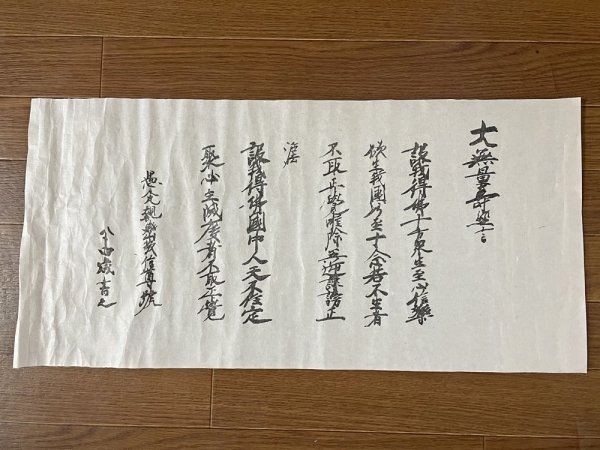 大無量壽經言
設我得佛十方衆生至心信樂
欲生我國乃至十念若不生者
不取正覺唯除五逆誹謗正
法
設我得佛國中人天不住定
聚必至滅度者不取正覺
愚禿親鸞敬信尊號
八十四歳書之